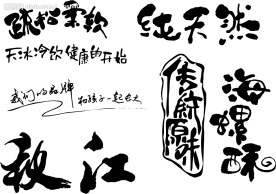 疏松柔软
纯天然
天冰冷饮健康的开始
我们的品牌
和孩子一起长大
传统原味
海螺酥
秋江